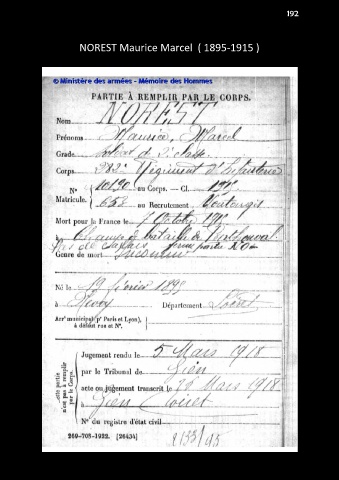 192
NOREST Maurice Marcel ( 1895-1915 )
© Ministère des armées - Mémoire des Hommes
PARTIE À REMPLIR PAR LE CORPS.
Nom NOREST
Prénoms Maurice, Marcel
Grade soldat de 2e classe
Corps 282e Régiment d'Infanterie
N° 10190 au Corps. — Cl. 1915
Matricule. 658 au Recrutement
Mort pour la France le 7 Octobre 1915
à Champ de bataille de
Pas de Calais
Genre de mort
Né le 19 février 1895
à Département Loiret
Arr' municipal (p' Paris et Lyon),
à défaut rue et N°.
Cette partie
n'est pas à remplir
par le Corps.
Jugement rendu le 5 Mars 1918
par le Tribunal de Gien
acte ou jugement transcrit le 28 Mars 1918
à Gien Loiret
N° du registre d'état civil
269-708-1922. [26434]